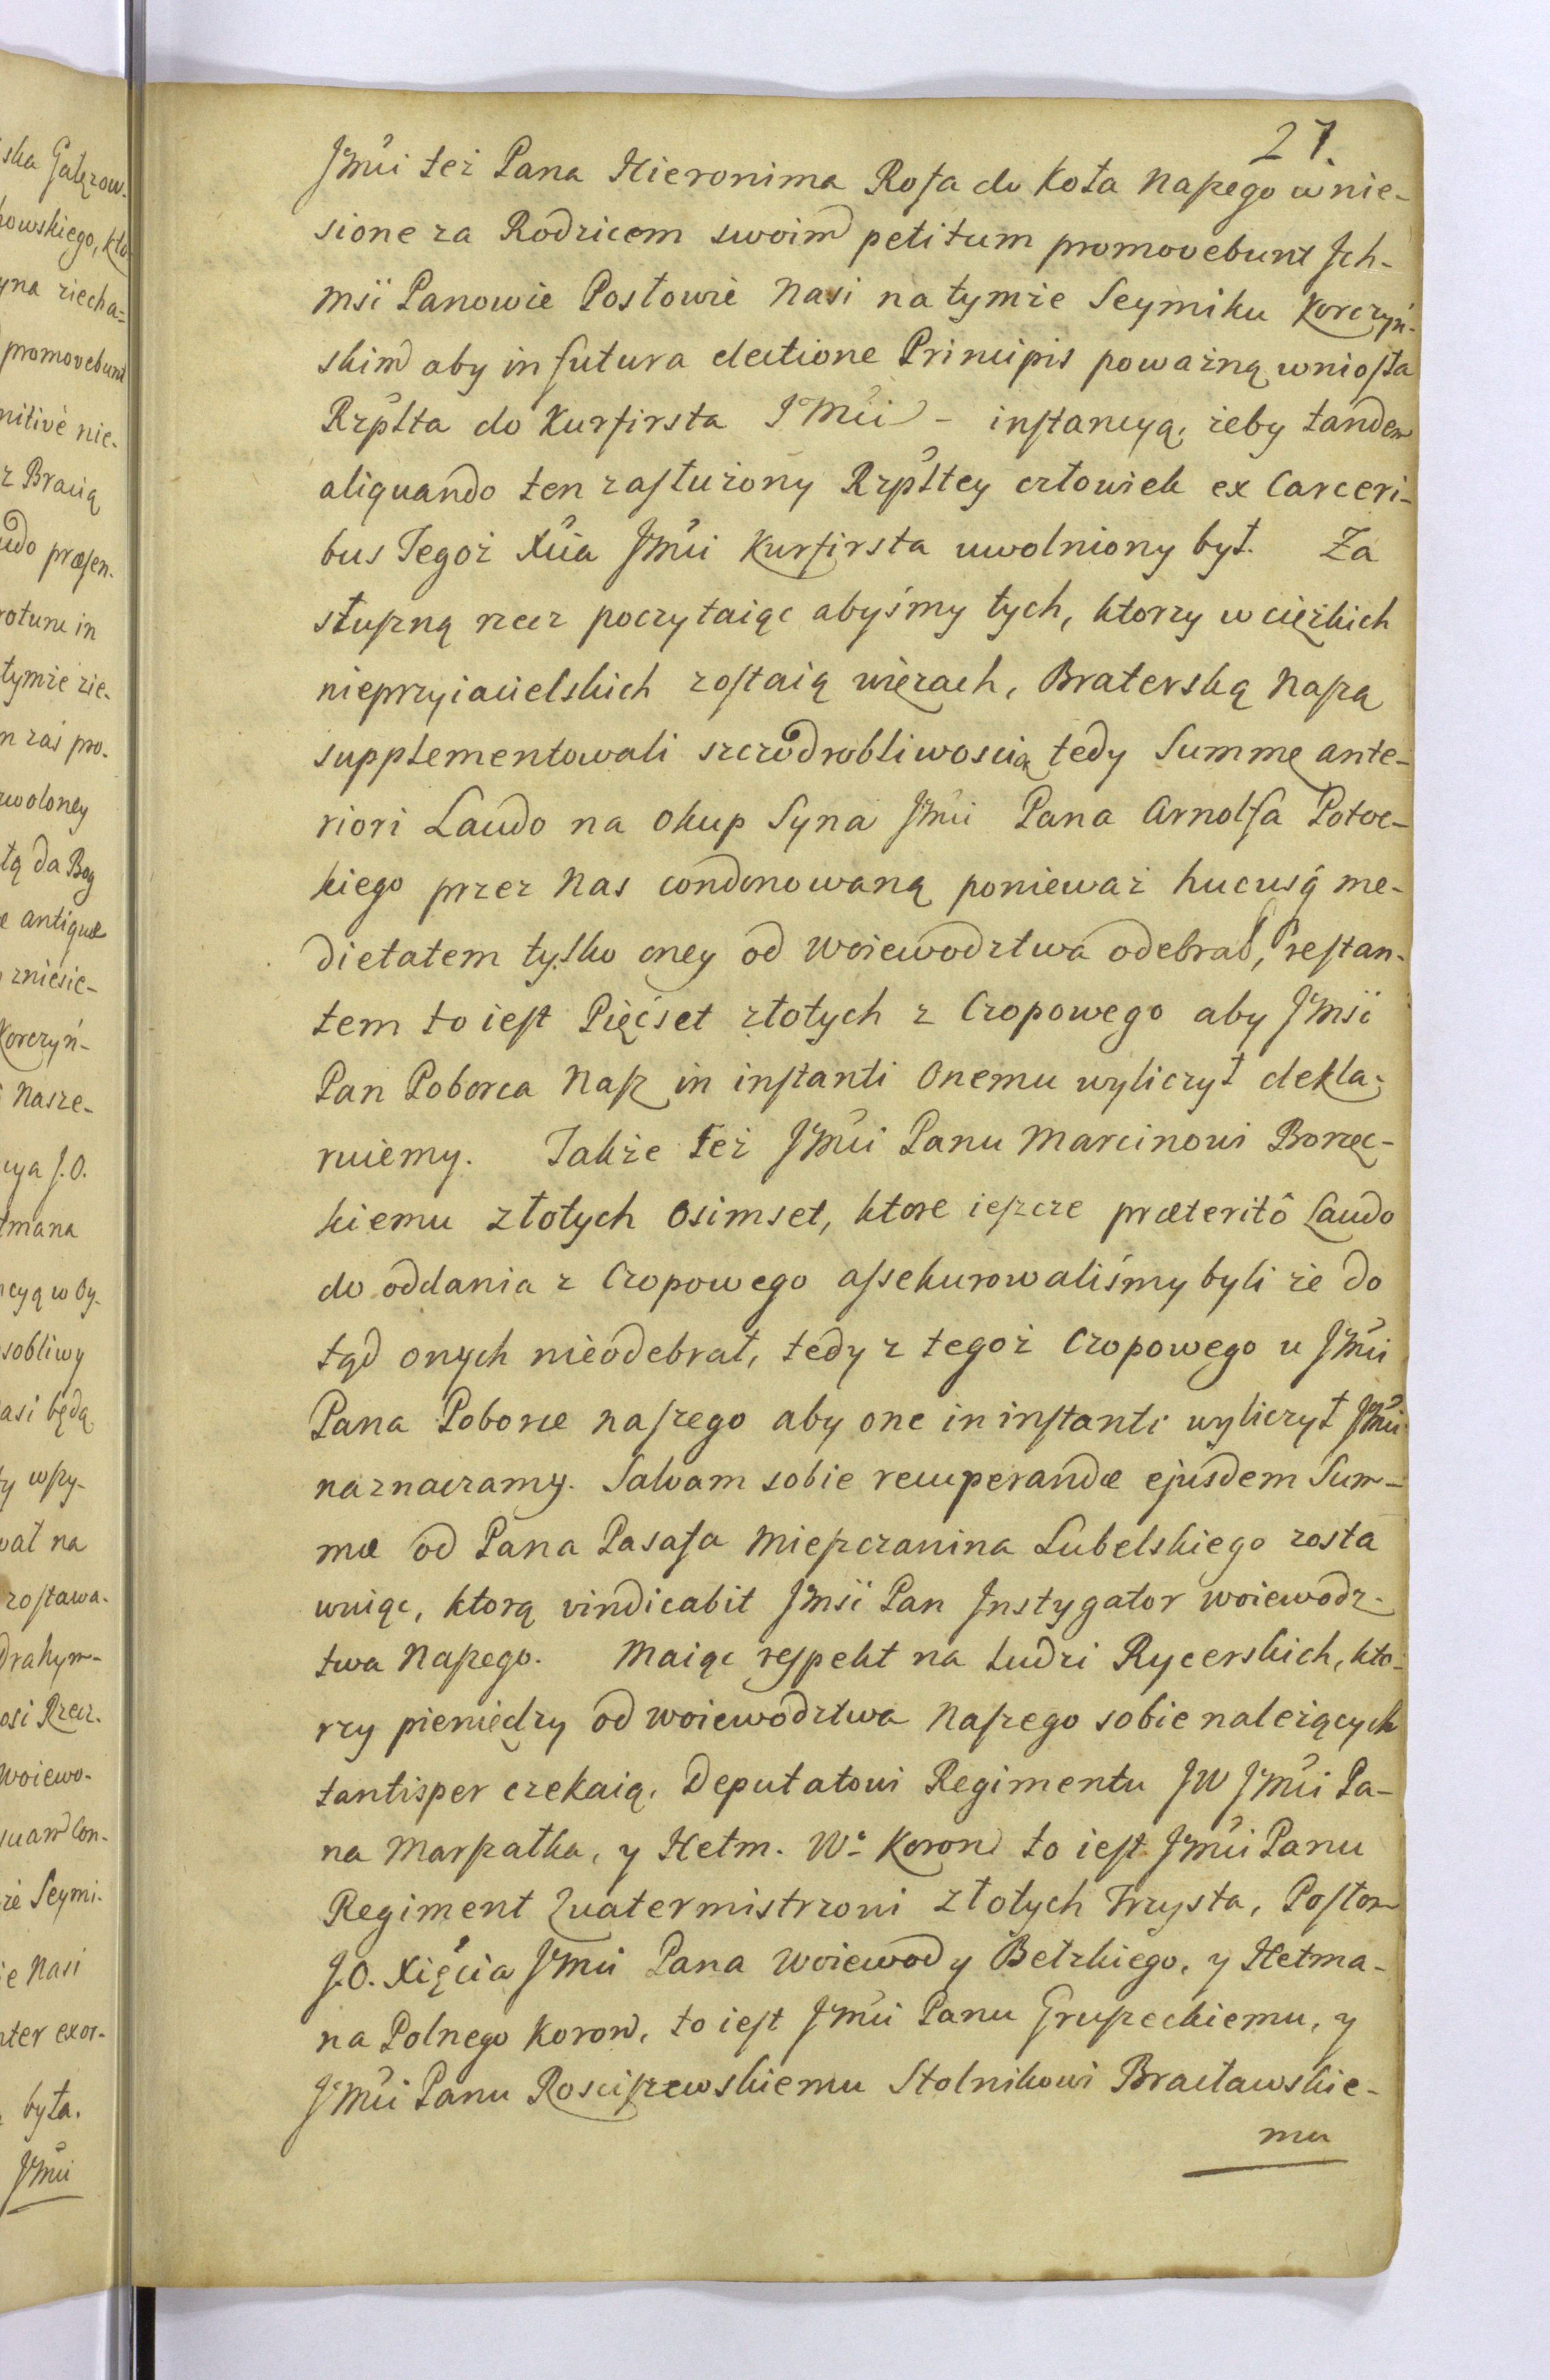 ska Gałęzow-
kowskiego, kto
yna ziecha=
promovebunt
nitivè nie-
z Bracią
udo præsen-
votum in
tymże zie-
m zaś pro-
zwoloney
tą da Bog
e antiquæ
zniesie-
Korczyń-
i nasze-
cya J.O.
tmana
ncyą w Oy-
sobliwy
asi będą
ty wszy-
wał na
zostawa-
Drahym-
osi Rzecz.
Woiewo-
quam Con-
że Seymi-
ie Nasi
nter exor-
była.
Jmći
27.
Jmći też Pana Hieronima Rosa do Koła Naszego wnie-
sione za Rodzicem swoim petitum promovebunt Ich-
msći Panowie Posłowie Nasi na tymże Seymiku Korczyń-
skim aby in futura electione Principis poważną wniosła
Rzplta do Kurfirsta Jmći – instancyą, żeby tandem
aliquando ten zasłużony Rzpltey człowiek ex Carceri-
bus Tegoż Xcia Jmći Kurfirsta uwolniony był. Za
słuszną rzecz poczytaiąc abyśmy tych, ktorzy w ciężkich
nieprzyiacielskich zostaią więzach, Braterską Naszą
supplementowali szczodrobliwoscią tedy Summę ante-
riori Laudo na okup Syna Jmći Pana Arnolfa Potoc-
kiego przez Nas condonowaną ponieważ hucusq me-
dietatem tylko oney od Woiewodztwa odebrał, restan-
tem to iest Pięćset złotych z Czopowego aby Jmsći
Pan Poborca Nasz in instanti Onemu wyliczył dekla-
ruiemy. Takze też Jmći Panu Marcinowi Borzęc-
kiemu złotych Osimset, ktore ieszcze præteritô Laudo
do oddania z Czopowego assekurowaliśmy byli że do
tąd onych nieodebrał, tedy z tegoż Czopowego u Jmći
Pana Poborce naszego aby one in instanti wyliczył Jmći
naznaczamy. Salvam sobie recuperandæ ejusdem Sum-
mæ od Pana Pasafa Mieszczanina Lubelskiego zosta
wuiąc, ktorą vindicabit Jmsći Pan Instygator Woiewodz-
twa Naszego. Maiąc respekt na ludzi Rycerskich, kto-
rzy pieniędzy od Woiewodztwa Naszego sobie należących
tantisper czekaią, Deputatowi Regimentu JW Jmći Pa-
na Marszałka, y Hetm. Wo Koron to iest Jmći Panu
Regiment Quatermistrzowi złotych Trzysta, Posłom
J.O. Xięcia Jmći Pana Woiewody Bełzkiego, y Hetma-
na Polnego Koron, to iest Jmći Panu Gruszeckiemu, y
Jmći Panu Rosciszewskiemu Stolnikowi Bracławskie-
mu